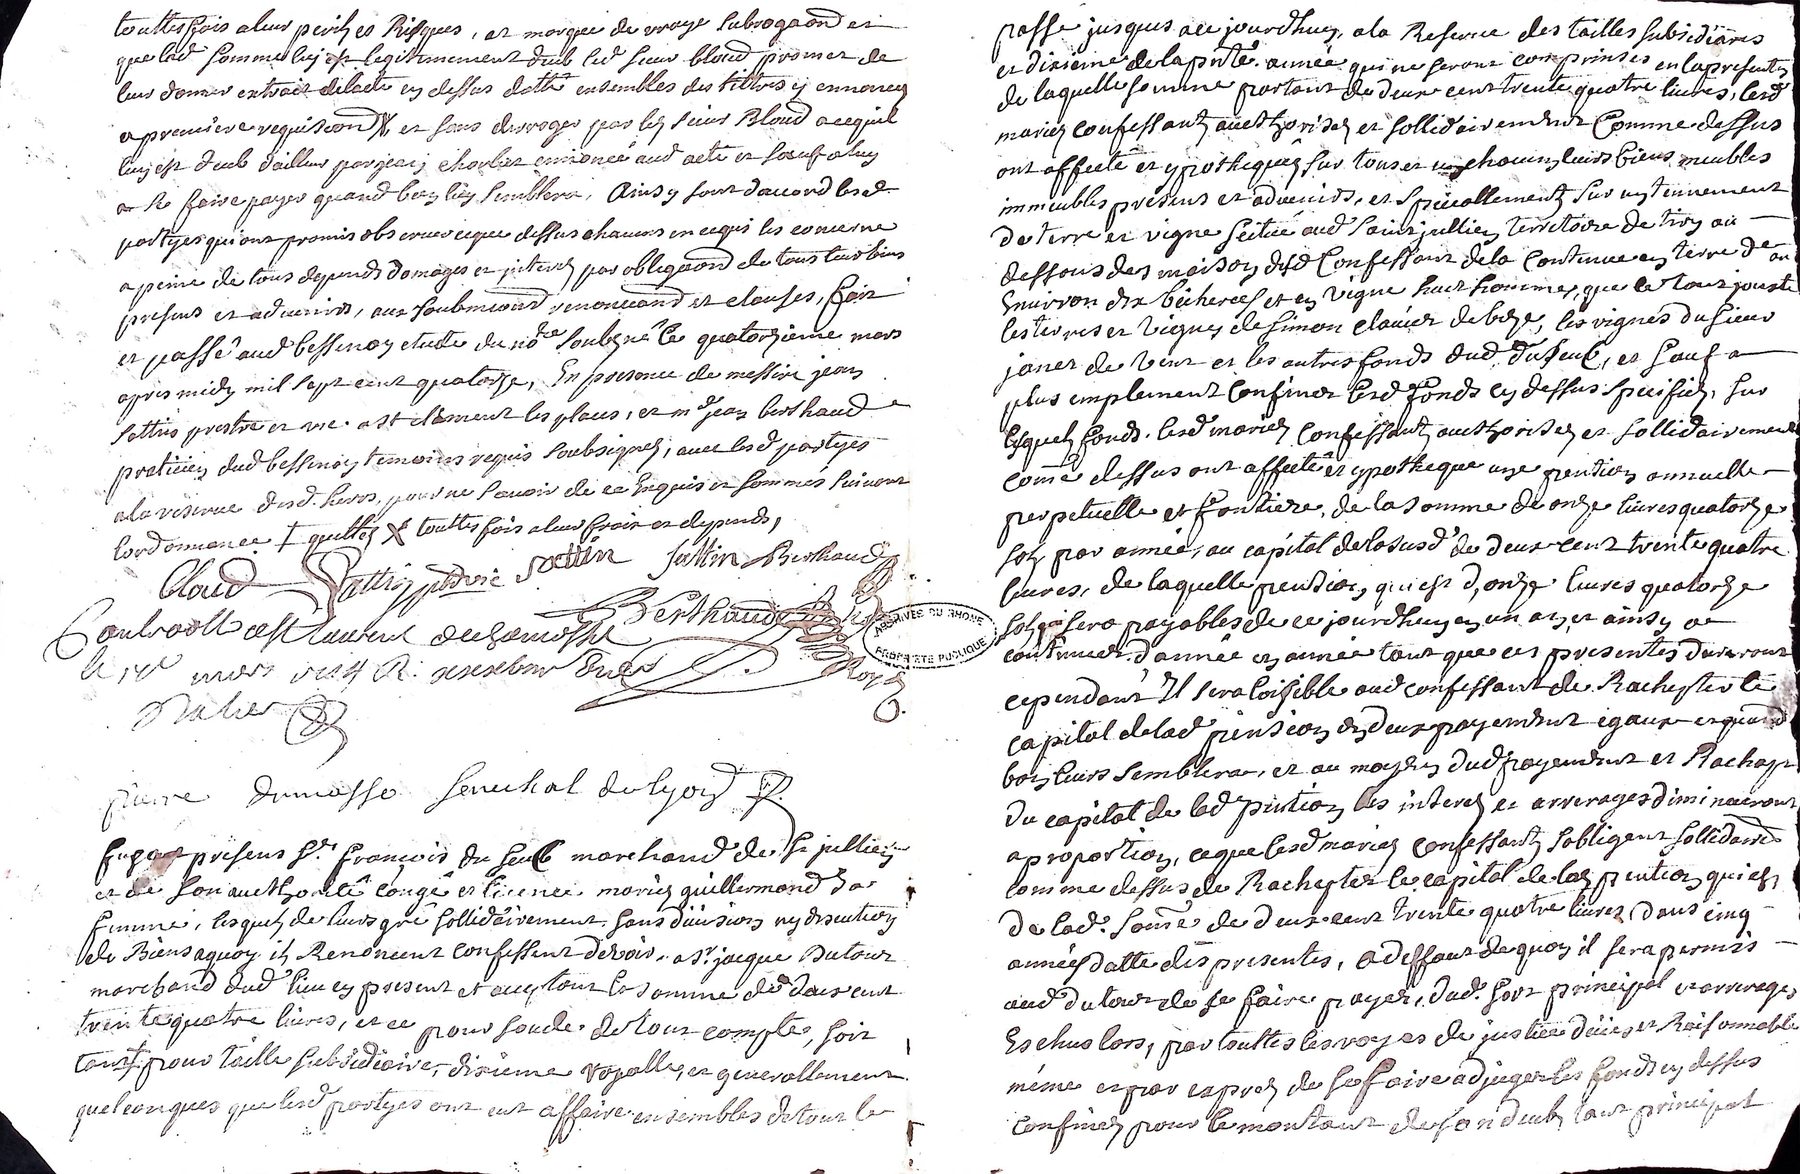 touttesfois a leur perilz et Risques, et marque de vraye subrogaōnd et
que lad somme luy est legitimement dub led sieur bloud promet de
leur donner extrait de lacte cy dessus datté ensembles des tittres y ennoncez
a premiere requisicōnd X et sans derroger par led sieur Bloud a ce quil
luy est dueb dailleur par jean charlier ennoncé aud acte et sauf a luy
a se faire payer quand bon luy semblera, Ainsy sont daccord lesd
partyes qui ont promis observer ce que dessus chacuns en ce qui les concerne
a peine de tous depends domages et jnterez par obligaōnd de tous leurs biens
presens et advenirs, aux soubmiōnd renonciaōnd et clauses, fait
et passé aud bessenay etude du nore soubzne le quatorzieme mars
apres midy mil sept cent quatorze, En presence de messire jean
sottin prestre et vic. a st clement les places, et me jean berthaud
praticien dud bessenay temoins requis soubsignez, avec lesd partyes
a la reserve desd. pour ne savoir de ce Enquis et sommés suivant
lordonnance ‡ quittes X touttesfois a leur frais et depends,
Bloud Sottin ptre vic sottin Sottin Berthaud
Controollé a st laurent de chamousset Berthaud
le mars 1714 R.
pierre de masso senechal de lyon
fust present sr. françois du seuc marchand de st jullien
et de son authorité congé et licence mariez guillermond sa
femme, lesquelz de leurs gré sollidairement sans division ny discution
de Biens a quoy ilz Renoncent confessent devoir. a sr. jacque Dutour
marchand dud lieu cy present et acceptant la somme de deux cent
trente quatre livres, et ce pour soude de tout compte, soit
tant pour taille subsidiaire, dixieme royalle, et generallement
quelconques que lesd partyes ont eut affaire ensembles de tout le
passé jusques a ce jourdhuy, a la Reserve des tailles subsidiaires
et dixieme de la pnte. année qui ne seront comprinses en la presente
de laquelle somme portant de deux cent trente quatre livres, lesd
mariez confessantz aucthorisez et sollidairement Comme dessus
ont affecté et ypothequé sur tous et un chacuns leurs biens meubles
immeubles presens et advenirs, et speciallement sur un tennement
de terre et vigne scitué aud saint jullien territoire de tiry au
dessous des maison desd Confessant de la Contenue en terre de an
Environ dix bicherees et en vigne huit hommes, que le tout jouste
les terres et vignes de simon clavier de beze, les vignes du sieur
janet de vent et les autres fonds dud Duseuc, et sauf a
plus emplement confiner lesd fonds cy dessus specifiez, sur
lesquelz fonds. lesd mariez confessantz aucthorisez et sollidairement
comē dessus ont affecté et ypothequé une pention annuelle
perpetuelle et fontiere, de la somme de onze livres quatorze
solz par année, au capital de la susd de deux cent trente quatre
livres, de laquelle pension, qui est d'onze livres quatorze
solz sera payables de ce jourdhuy en un an, et ainsy a
continuer d'année en année tant que ces presentes dureront
cependant Il sera loisible aud confessant de Rachepter le
capital de lad pension en deux payement egaux et quand
bon leurs semblera, et au moyen dud payement et Rachapt
du capital de lad pention les interez et arrerages diminueront
a proportion, ce que lesd mariez confessantz sobligent sollidairemt
comme dessus de Rachepter le capital de lad pention qui est
de lad. some de deux cent trente quatre livres dans cinq
années datte des presentes, a deffaut de quoy il sera permis
aud dutour de se faire payer, dud. sort principal et arrerages
Eschus lors, par touttes les voyes de justice düies et Raisonnable
même et par exprez de se faire adjuger les fonds cy dessus
confinez pour le montant de son deub, tant principal